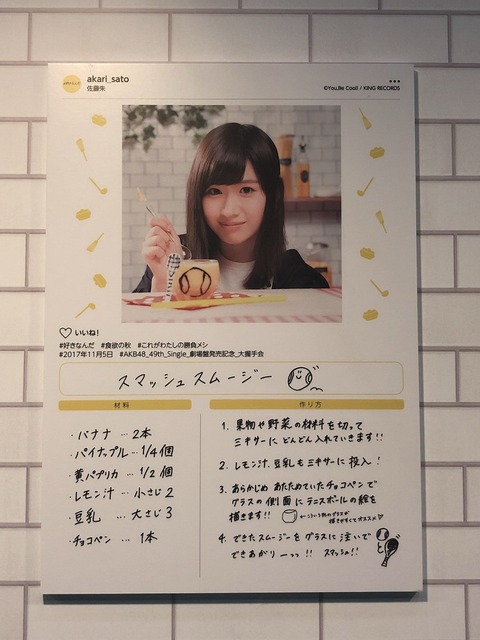 akari_sato
佐藤朱
©You,Be Cool! / KING RECORDS
いいね!
#好きなんだ #食欲の秋 #これがわたしの勝負メシ
#2017年11月5日 #AKB48_49th_Single_劇場盤発売記念_大握手会
スマッシュスムージー
材料
・バナナ … 2本
・パイナップル … 1/4個
・黄パプリカ … 1/2個
・レモン汁 … 小さじ2
・豆乳 … 大さじ3
・チョコペン … 1本
作り方
1. 果物や野菜の材料を切って
ミキサーにどんどん入れていきます!!
2. レモン汁、豆乳もミキサーに投入!
3. あらかじめあたためていたチョコペンで
グラスの側面にテニスボールの絵を
描きます!!
←こういう形のグラスが
描きやすくてオススメ♡
4. できたスムージーをグラスに注いで
できあがりーっっ!! スマッシュ!!